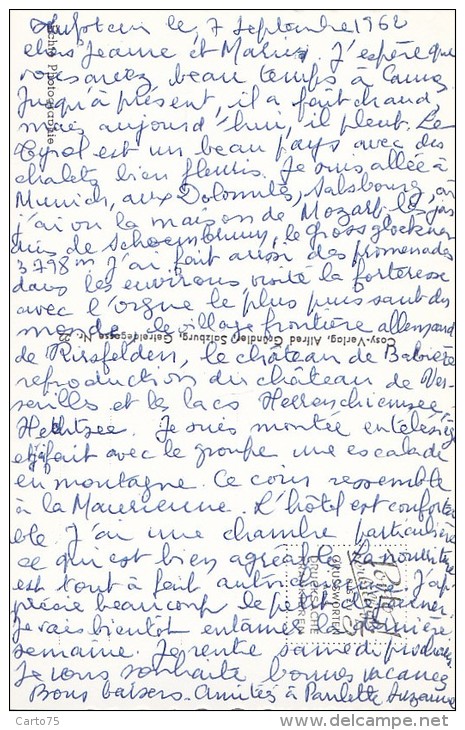 Kufstein le, 7 Septembre 1962
chers Jeanne et Marius J'espère que
vous avez beau temps à
Jusqu'à présent, il a fait chaud,
mais aujourd'hui, il pleut. Le
Tyrol est un beau pays avec des
chalets bien fleuris. Je suis allée à
Munich, aux Dolomites, Salsbourg, où
j'ai vu la maison de Mozart, les jar
dins de Schoenbrunn, le grossglockner
3798m J'ai fait aussi des promenades
dans les environs visité la forteresse
avec l'orgue le plus puissant du
monde, le village frontière allemand
de Kiefersfelden, le château de Bavière
reproduction du château de Ver
sailles et les lacs Herrenchiemsee,
Hechtsee. Je suis montée en télésiège
et fait avec le groupe une escalade
en montagne. Ce coin ressemble
à la Maurienne. L'hôtel est conforta
ble. J'ai une chambre particulière
ce qui est bien agréable. La nourriture
est tout à fait autrichienne. J'ap
précie beaucoup le petit déjeuner.
Je vais bientôt entamer la dernière
semaine. Je rentre samedi prochain.
Je vous souhaite bonnes vacances
Bons baisers. Amitiés à Paulette Suzanne
Echte Photographie
Cosy-Verlag, Alfred Gründler, Salzburg, Getreidegasse Nr. 22
GRUSSWORTEN
DRUCKSACHE
Carto75
www.delcampe.net